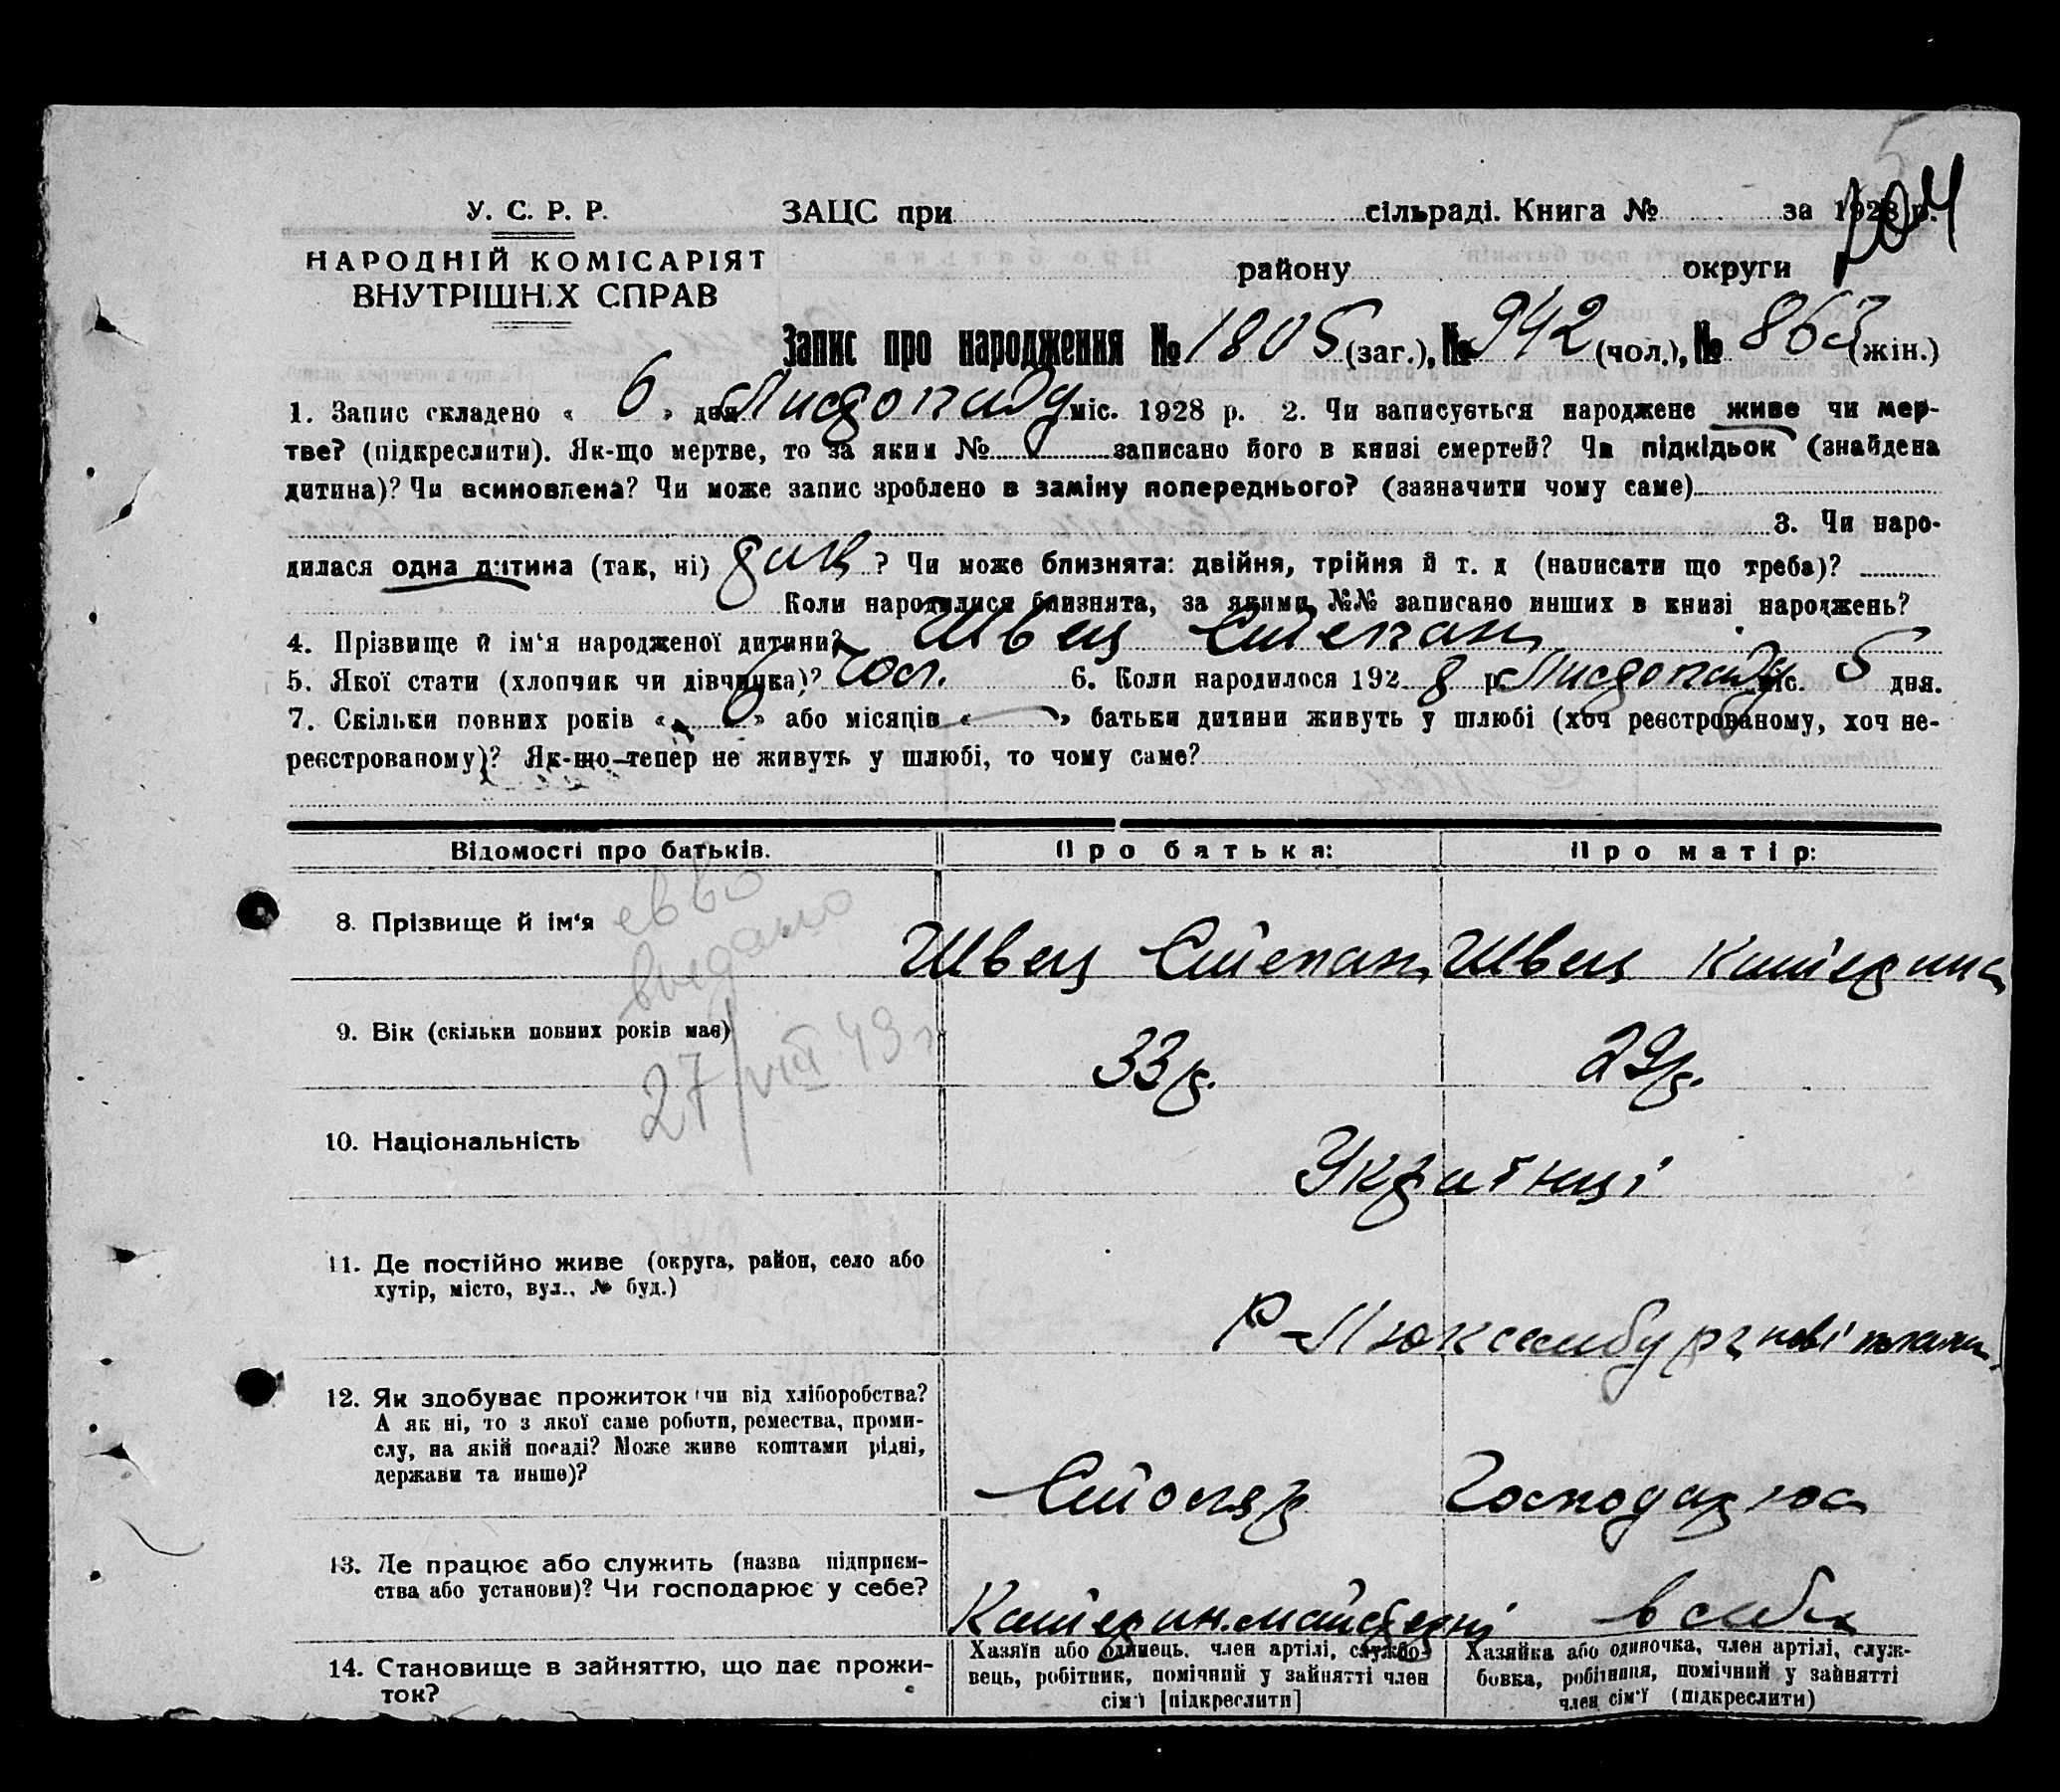 204
У. С. Р. Р.
ЗАЦС при сільраді. Книга № за 1928 р.
НАРОДНІЙ КОМІСАРІЯТ
ВНУТРІШНІХ СПРАВ
району округи
Запис про народження № 1805 (заг.), № 942 (чол.), № 863 (жін.)
1. Запис складено « 6 » дня Листопаду міс. 1928 р. 2. Чи записується народжене живе чи мер-
тве? (підкреслити). Як-що мертве, то за яким № записано його в книзі смертей? Чи підкідьок (знайдена
дитина)? Чи всиновлена? Чи може запис зроблено в заміну попереднього? (зазначити чому саме)
3. Чи наро-
дилася одна дитина (так, ні) ? Чи може близнята: двійня, трійня й т. д (написати що треба)?
Коли народилися близнята, за якими №№ записано инших в книзі народжень?
4. Прізвище й ім‘я народженої дитини? Швец Степан
5. Якої стати (хлопчик чи дівчинка)? чол. 6. Коли народилося 192 8 р. Листопаду міс. 5 дня.
7. Скільки повних років « » або місяців « » батьки дитини живуть у шлюбі (хоч реєстрованому, хоч не-
реєстрованому)? Як-що тепер не живуть у шлюбі, то чому саме?
Відомості про батьків. Про батька: Про матір:
8. Прізвище й ім‘я Швец Степан Швец Катерина
видано
27/VIII 49 г
9. Вік (скільки повних років має) 33 р. 29 р.
10. Національність Українці
11. Де постійно живе (округа, район, село або
хутір, місто, вул., № буд.)
Р-Люксембург нові плани.
12. Як здобуває прожиток (чи від хліборобства?
А як ні, то з якої саме роботи, ремества, проми-
слу, на якій посаді? Може живе коштами рідні,
держави та инше)?
Столяр Господарює
13. Де працює або служить (назва підприєм-
ства або установи)? Чи господарює у себе?
Катерин. майстерні в себе
14. Становище в зайняттю, що дає прожи-
ток?
Хазяїн або одинець, член артілі, службо-
вець, робітник, помічний у зайнятті член
сім‘ї [підкреслити]
Хазяйка або одиночка, член артілі, служ-
бовка, робітниця, помічний у зайнятті
член сім‘ї (підкреслити)